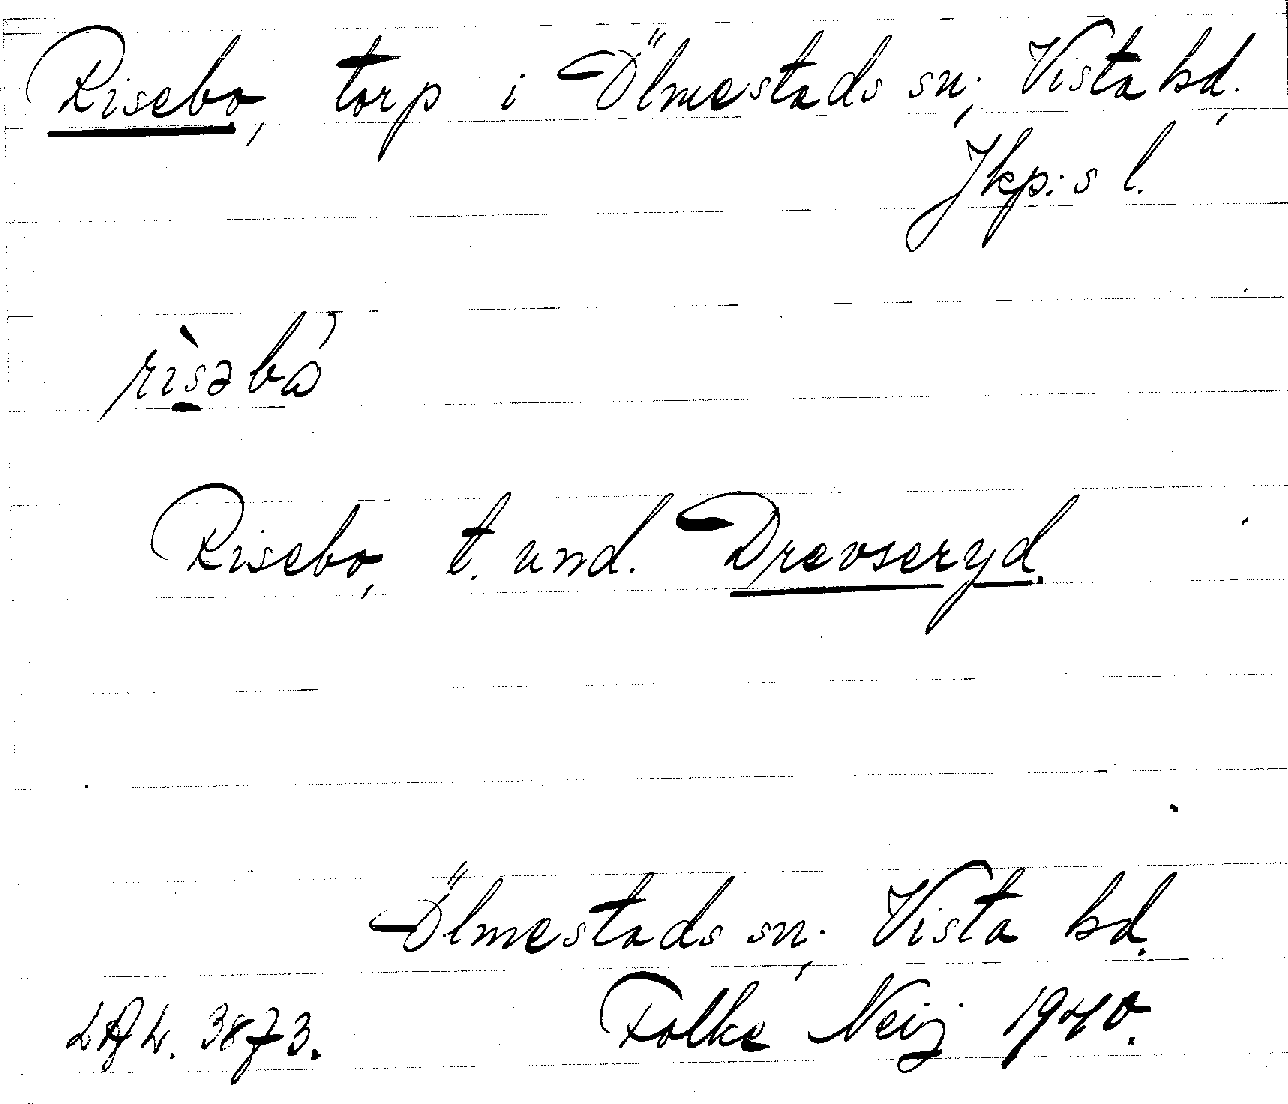 Risebo, torp i Ölmestads sn; Vista hd.
Jkp:s l.
rìsəbó
Risebo, t. und. Drevseryd.
Ölmestads sn; Vista hd.
3873. Folke Neij 1940.